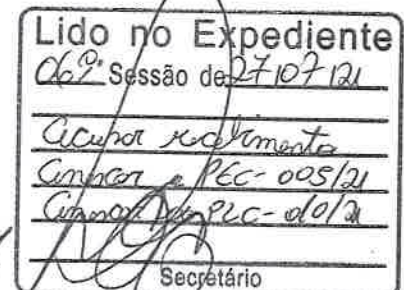 Lido no Expediente
069ª Sessão de 27/07/21
Acusar recebimento
Anexar a PEC-005/21
Anexar PLC-010/21
Secretário